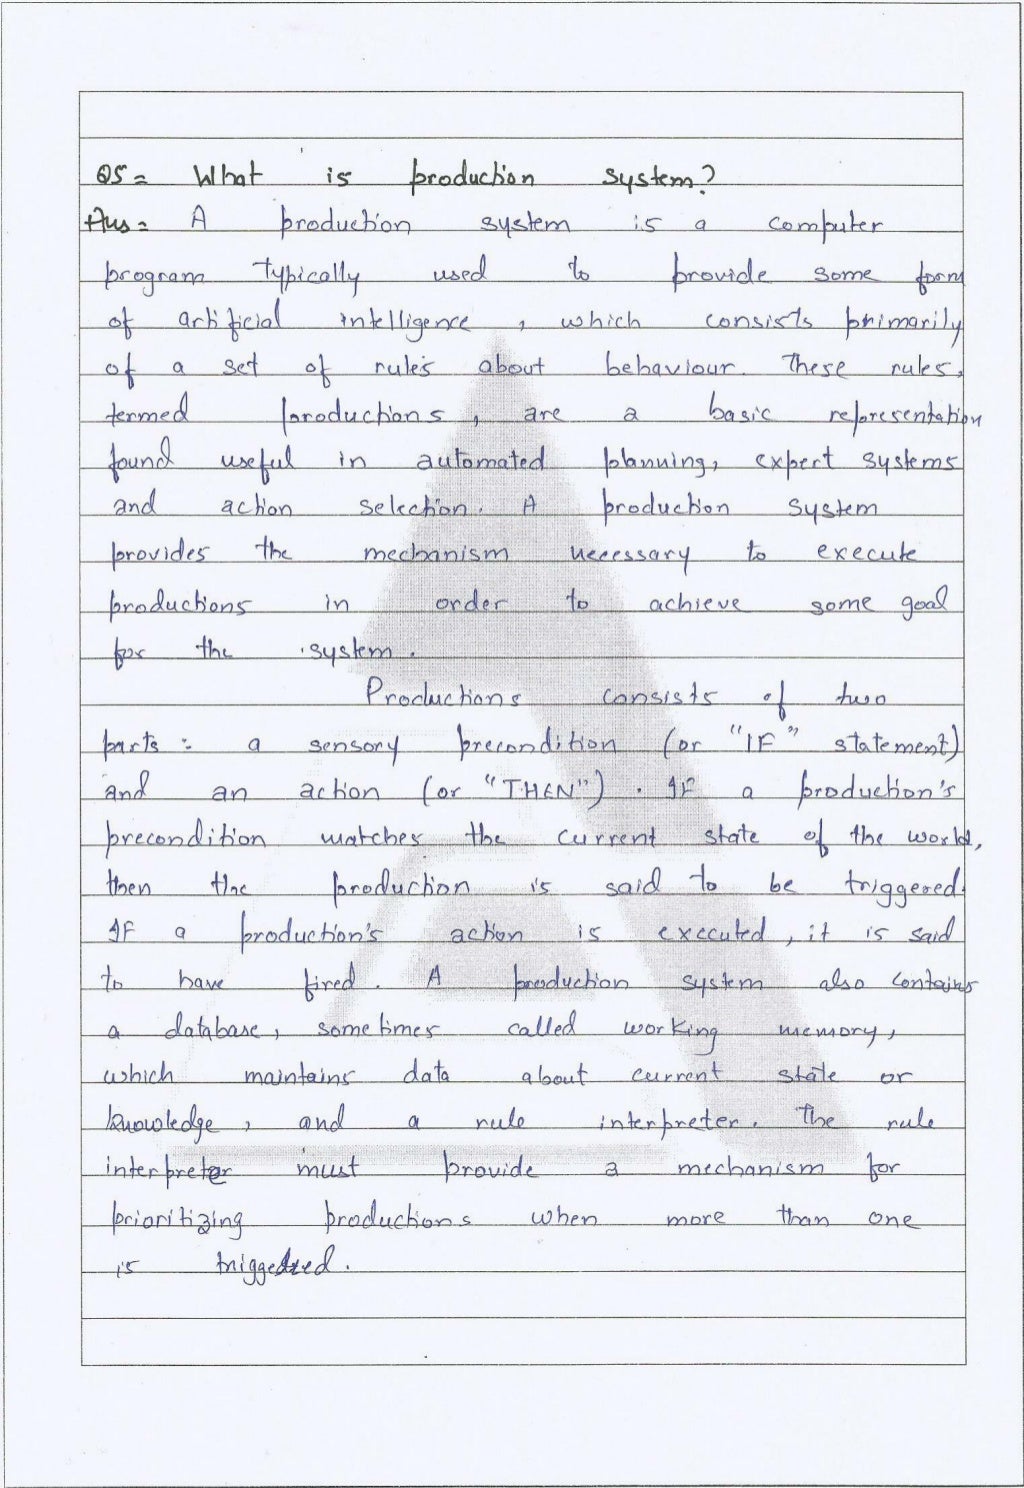 Q5= What is production system?
Ans= A production system is a computer
program typically used to provide some form
of artificial intelligence, which consists primarily
of a set of rules about behaviour. These rules,
termed productions, are a basic representation
found useful in automated planning, expert systems
and action selection. A production system
provides the mechanism necessary to execute
productions in order to achieve some goal
for the system.
Productions consists of two
parts: a sensory precondition (or "IF" statement)
and an action (or "THEN"). IF a production's
precondition matches the current state of the world,
then the production is said to be triggered.
IF a production's action is executed, it is said
to have fired. A production system also contains
a database, sometimes called working memory,
which maintains data about current state or
knowledge, and a rule interpreter. The rule
interpreter must provide a mechanism for
prioritizing productions when more than one
is triggered.